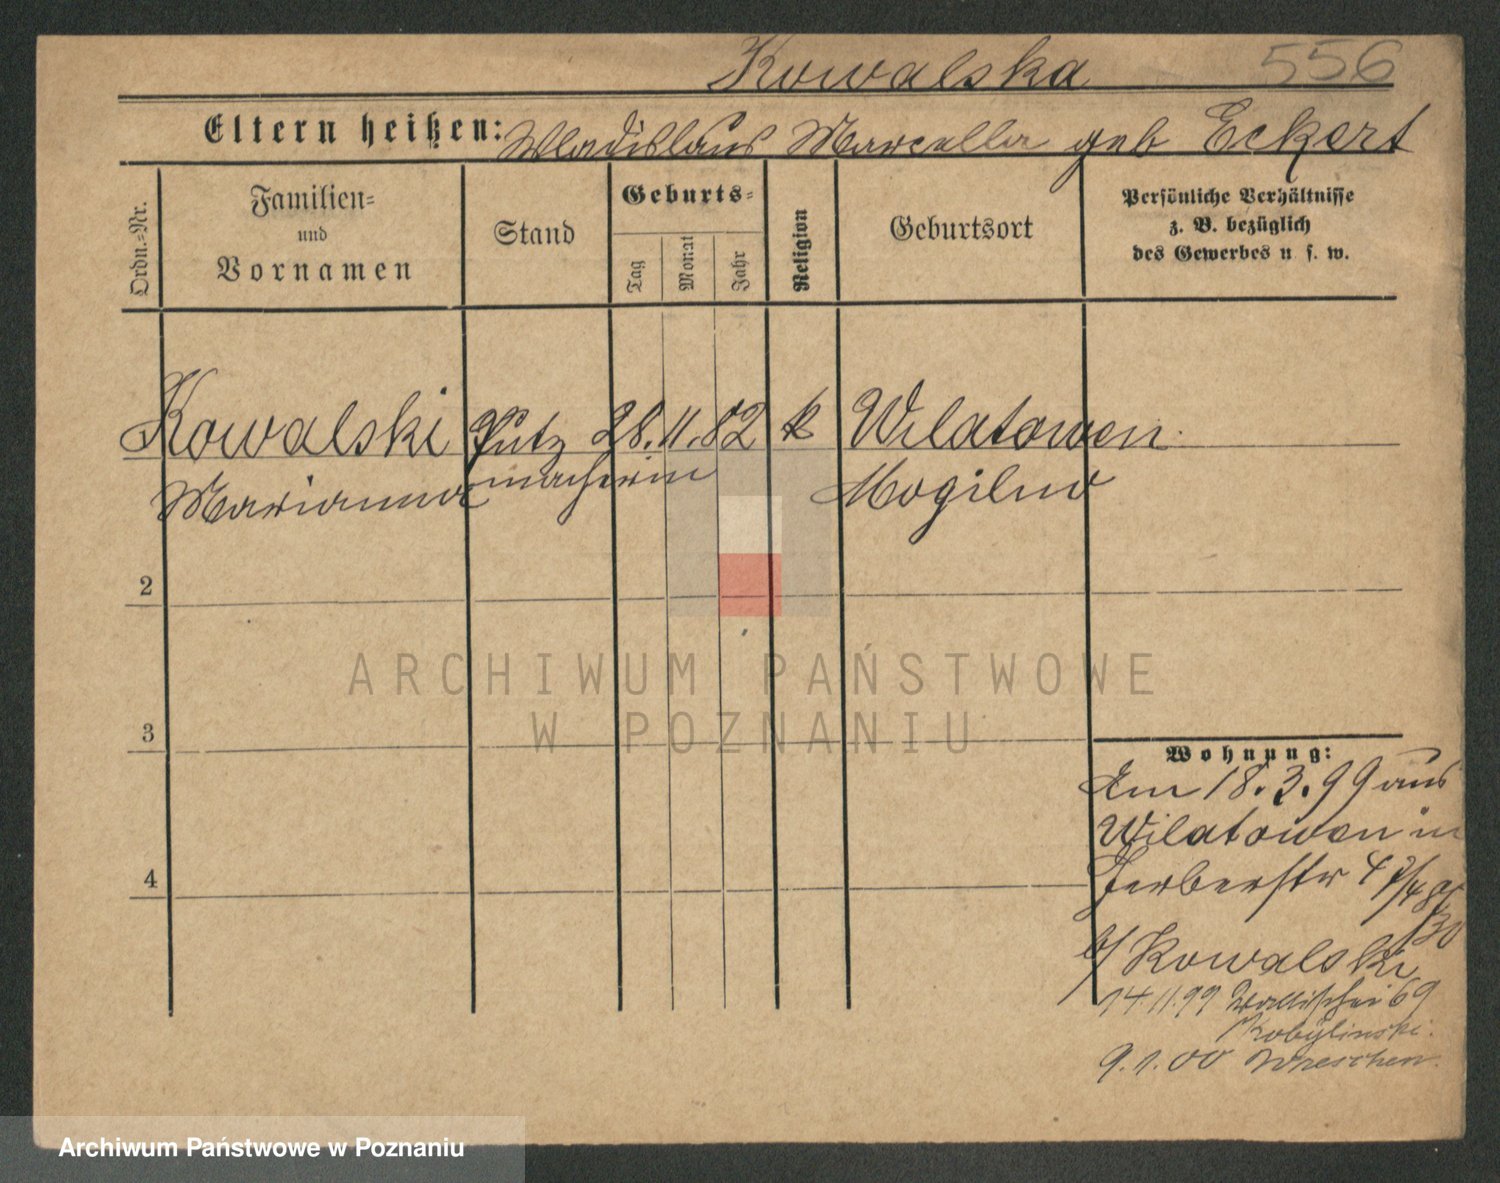 Kowalska 556
Eltern heißen: Wladislaus Marcella geb Eckert
Ordn.=Nr.
Familien=
und
Vornamen
Stand
Geburts=
Tag
Monat
Jahr
Religion
Geburtsort
Persönliche Verhältnisse
z. B. bezüglich
des Gewerbes u s. w.
Kowalski Putz 28. 11. 82 k Wilatowen
Marianna macherin Mogilno
2
3
4
ARCHIWUM PAŃSTWOWE
W POZNANIU
Wohnung:
Am 18. 3. 99 aus
Wilatowen in
Gerberstr 4
b/ Kowalski
14.11.99 Wallischei 69
Kobylinski.
9.1.00 Wreschen.
Archiwum Państwowe w Poznaniu